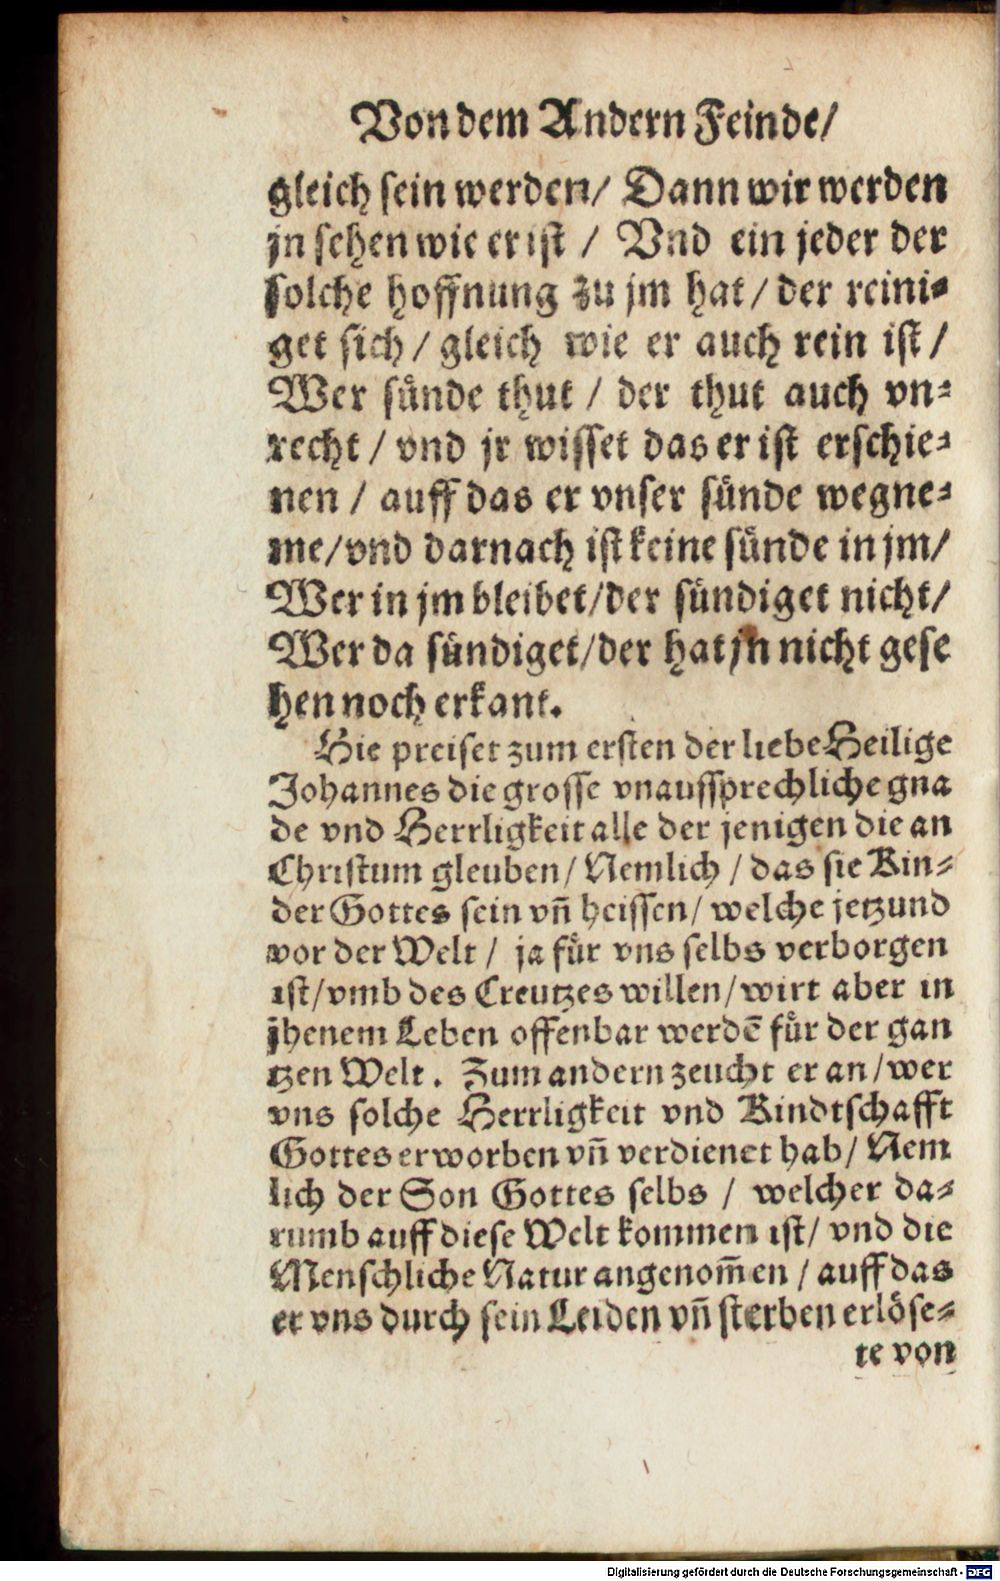 Von dem Andern Feinde/
gleich sein werden/ Dann wir werden
jn sehen wie er ist / Vnd ein jeder der
solche hoffnung zu jm hat / der reini-
get sich / gleich wie er auch rein ist /
Wer sünde thut / der thut auch vn-
recht / vnd jr wisset das er ist erschie-
nen / auff das er vnser sünde wegne-
me/vnd darnach ist keine sünde in jm/
Wer in jm bleibet/der sündiget nicht/
Wer da sündiget/der hat jn nicht gese
hen noch erkant.
Hie preiset zum ersten der liebe Heilige
Johannes die grosse vnaussprechliche gna
de vnd Herrligkeit alle der jenigen die an
Christum gleuben/ Nemlich / das sie Kin-
der Gottes sein vn̄ heissen/ welche jetzund
vor der Welt / ja für vns selbs verborgen
ist/vmb des Creutzes willen/wirt aber in
jhenem Leben offenbar werdē für der gan
tzen Welt. Zum andern zeucht er an/wer
vns solche Herrligkeit vnd Kindtschafft
Gottes erworben vn̄ verdienet hab/ Nem
lich der Son Gottes selbs / welcher da-
rumb auff diese Welt kommen ist/ vnd die
Menschliche Natur angenom̄en / auff das
er vns durch sein Leiden vn̄ sterben erlöse-
te von
Digitalisierung gefördert durch die Deutsche Forschungsgemeinschaft - DFG